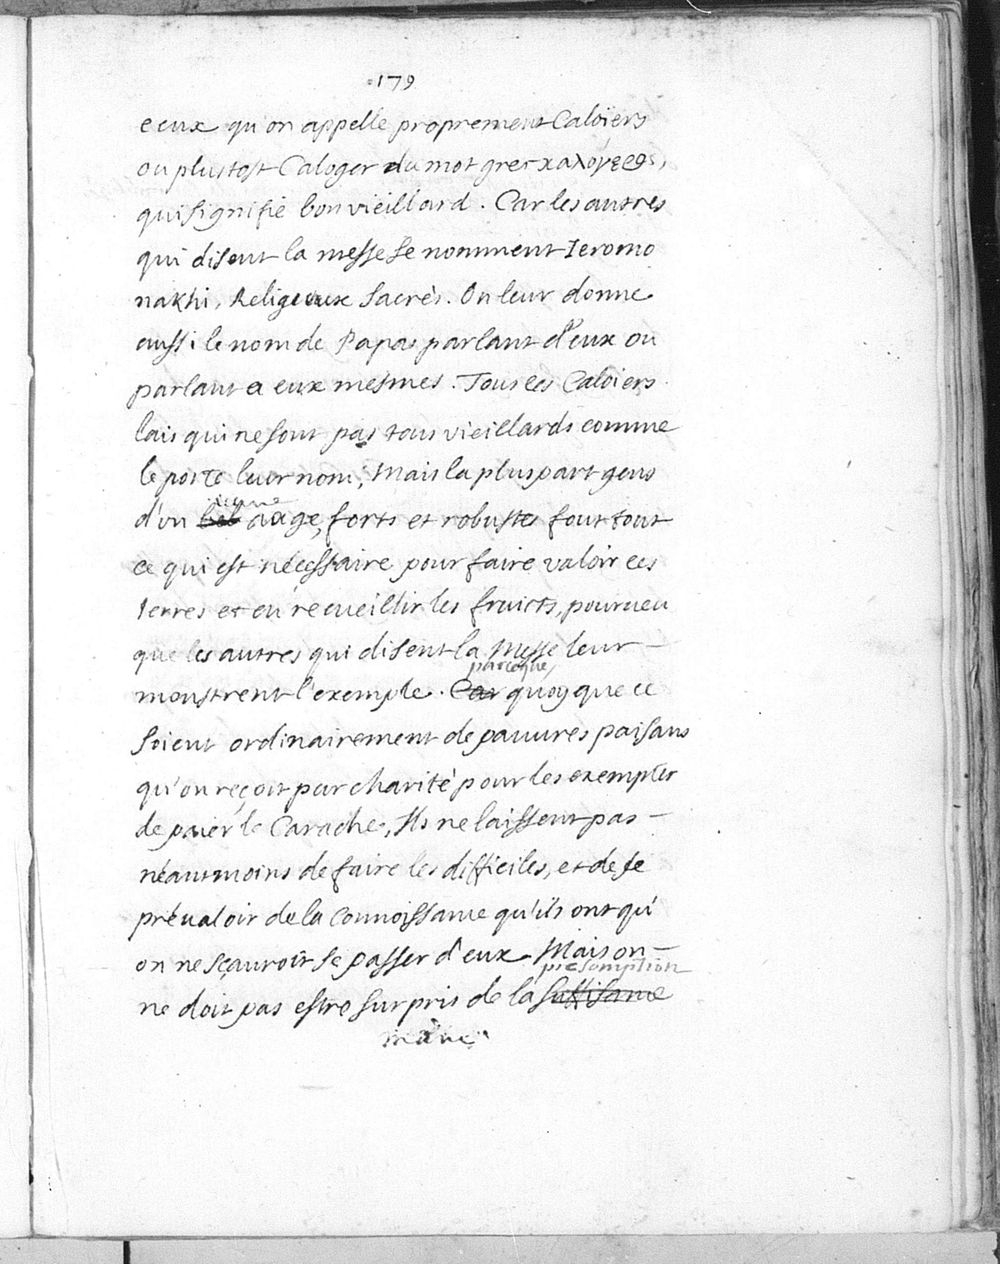 179
ceux qu'on appelle proprement Caloiers
ou plustost Caloger du mot grec καλόγερος,
qui signifie bon vieillard. Car les autres
qui disent la messe se nomment Ieromo
nakhi, Religieux Sacrés. On leur donne
aussi le nom de Papas parlant d'eux ou
parlant a eux mesmes. Tous ces Caloiers
lais qui ne sont pas tous vieillards comme
le porte leur nom, Mais la pluspart gens
d'un bel aage, forts et robustes font tout
ce qui est nécessaire pour faire valoir ces
terres et en recueillir les fruicts, pourveu
que les autres qui disent la Messe leur
parceque
monstrent l'exemple. Car quoy que ce
soient ordinairement de pauures paisans
qu'on reçoit par charité pour les exempter
de paier le Carache, Ils ne laissent pas
néantmoins de faire les difficiles, et de se
préualoir de la connoissance qu'ils ont qu'
on ne sçauroit se passer d'eux. Mais on
présomption
ne doit pas estre surpris de la suffisance